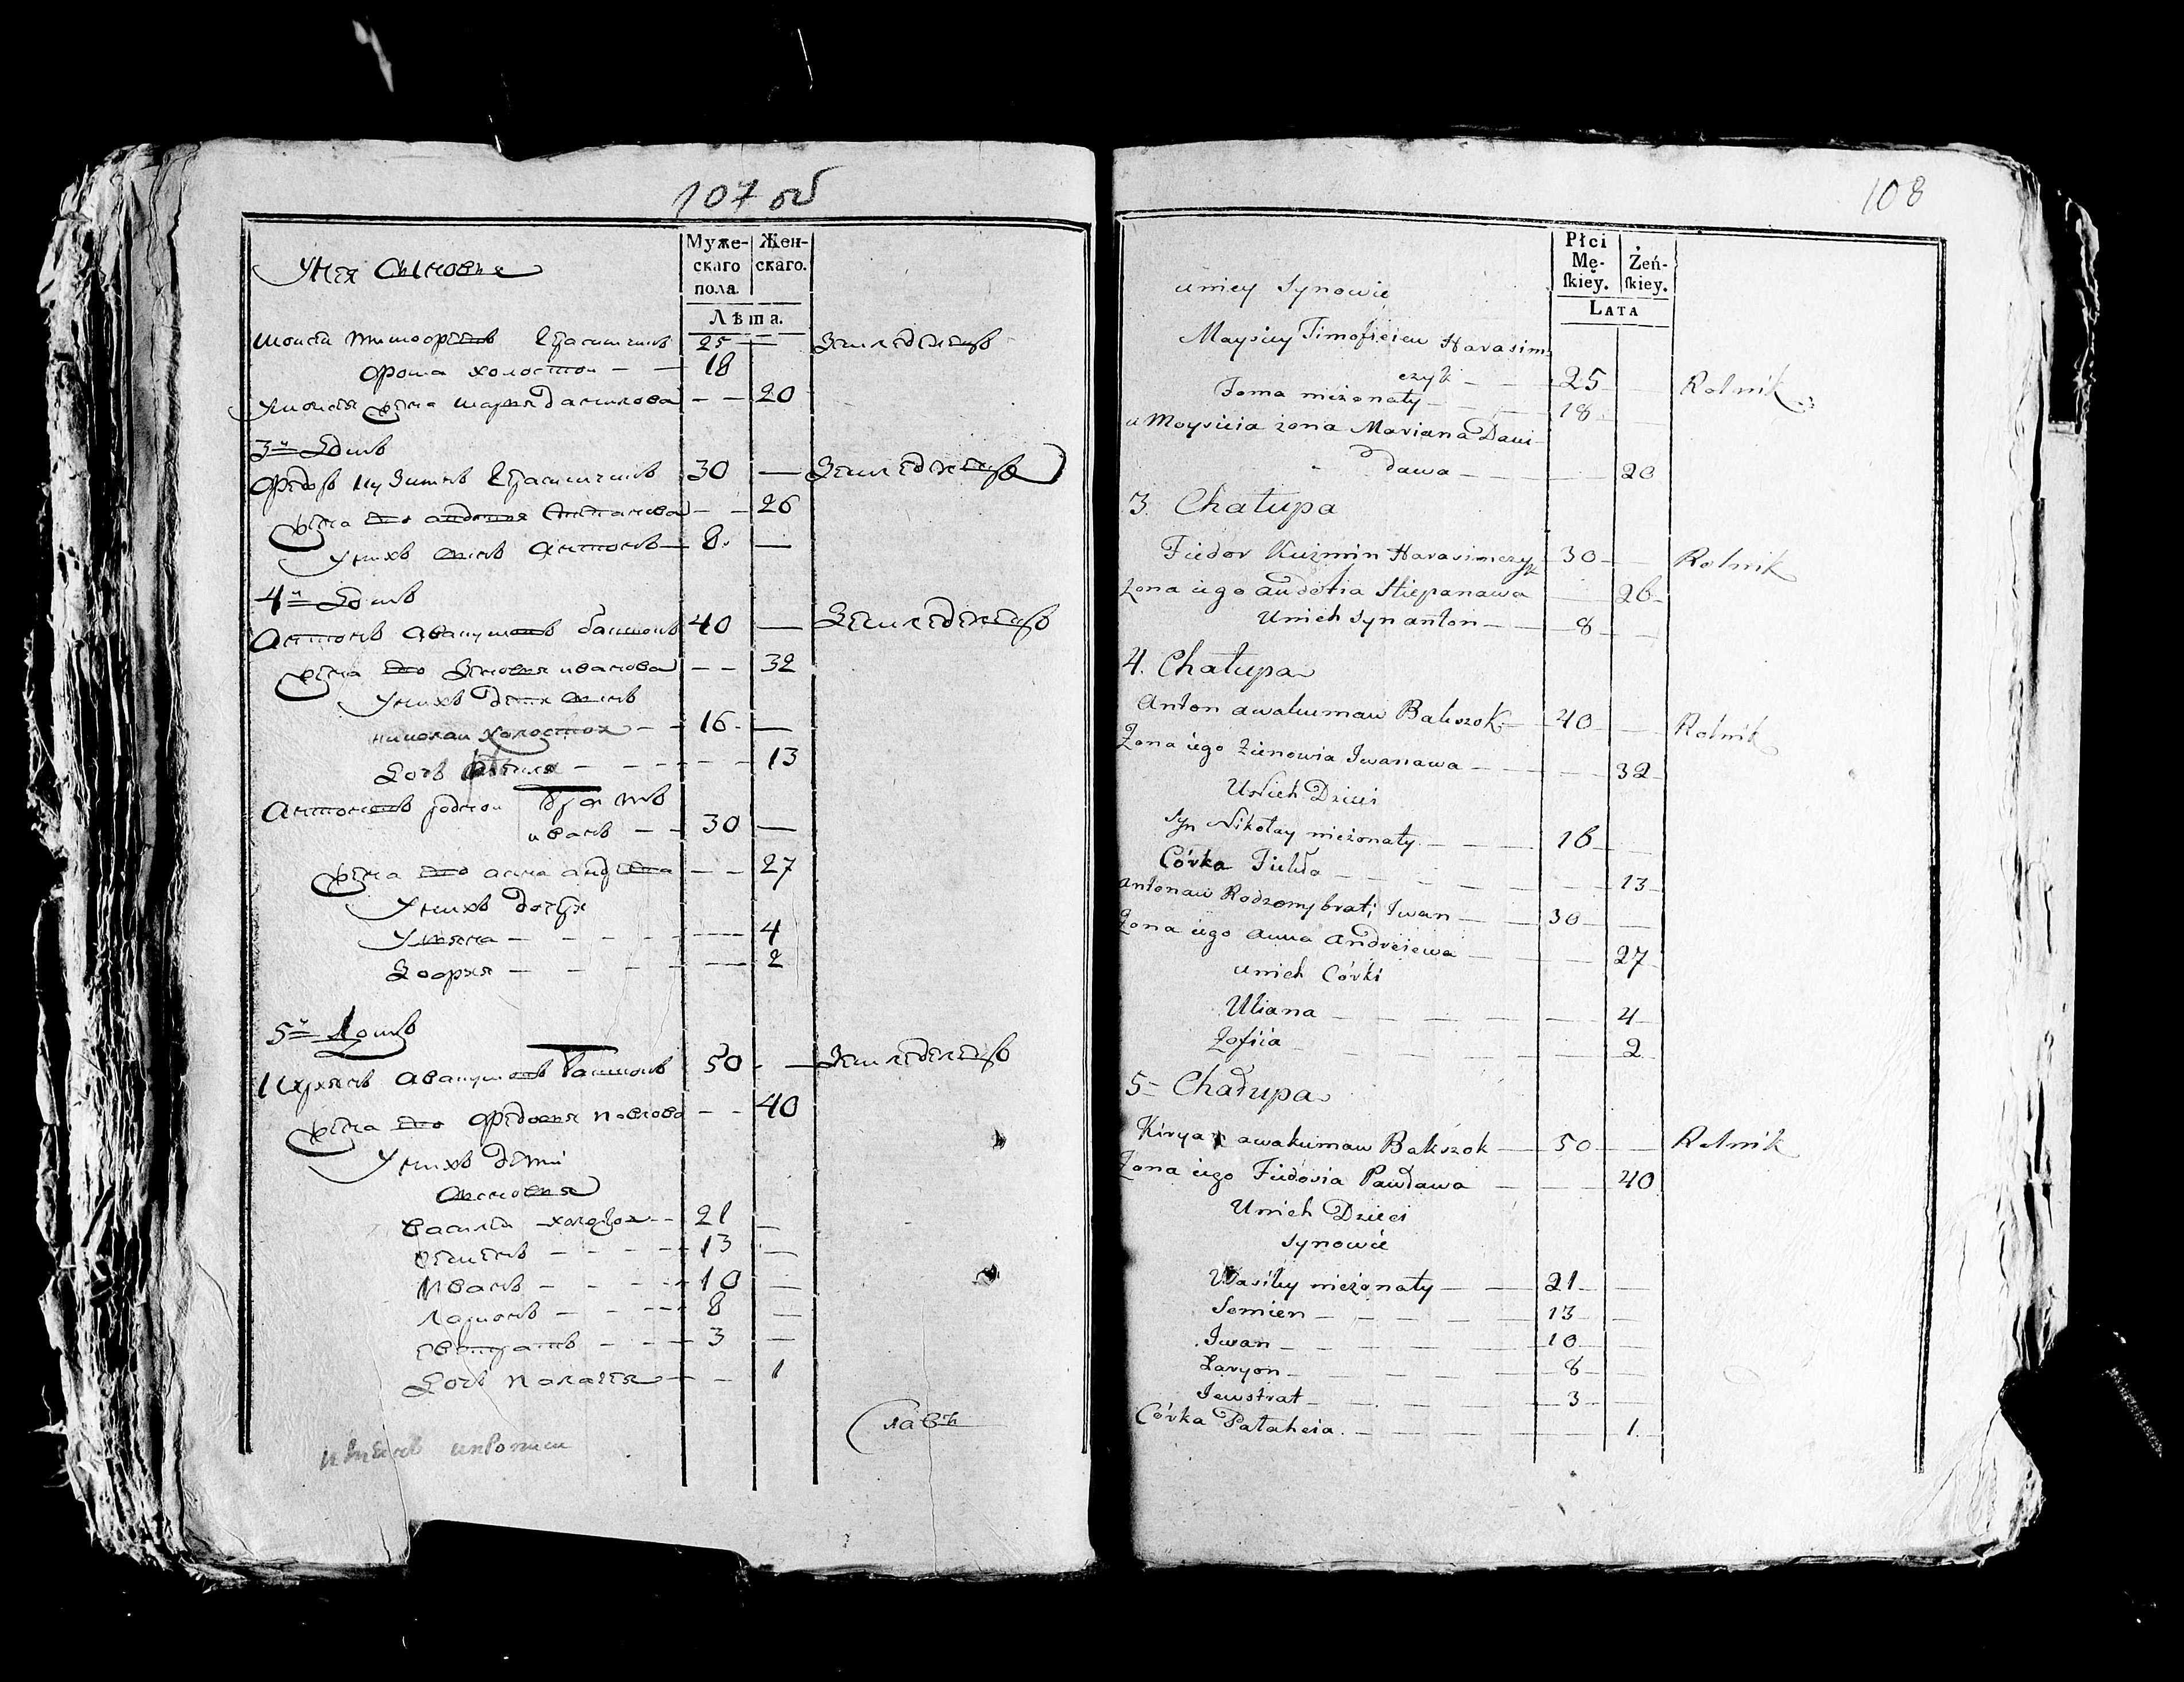 107 об
Муже-
скаго
пола
Жен-
скаго.
Лѣта.
У нея Сыновья
Моисей Тимофеевъ Герасимчикъ 25 — Земледелецъ
Фома холостой — — 18
У Моисея жена Марья Данилова — — 20
3й Домъ
Федоръ Кузминъ Герасимчикъ 30 — Земледелецъ
жена его Авдотья Степанова — — 26
У нихъ сынъ Антонъ — 8 —
4й Домъ
Антонъ Авакумовъ Бакшокъ 40 — Земледелецъ
жена его Зеновья Иванова — — 32
У нихъ дети сынъ
Николай холостой — — 16 —
Дочь — — — 13
Антоновъ родной братъ
Иванъ — — 30 —
жена его Анна Андреева — — 27
У нихъ дочери
Ульяна — — — — 4
Зофья — — — — 2
5й Домъ
Кирьянъ Авакумовъ Бакшокъ 50 — Земледелецъ
жена его Федосья Павлова — — 40
У нихъ дети
сыновья
Василей холостой — 21 —
Семенъ — — — 13 —
Иванъ — — — 10 —
Ларионъ — — — 8 —
Евстратъ — — — 3 —
Дочь Палагея — — 1
108
Płci
Mę-
skiey.
Żeń-
skiey.
Lata
u niey Synowie
Maysiey Timofieiew Harasim
czyk — — 25 — Rolnik
Foma nieżonaty — — 18 —
u Moysieia żona Mariana Dani
dawa — — — 20
3. Chałupa
Fiedor Kuźmin Harasimczyk 30 — Rolnik
Żona iego audotia Stiepanawa — 26
U nich Syn anton — — 8 —
4. Chałupa
Anton awakumaw Bakszok — 40 — Rolnik
Żona iego Zienowia Iwanawa — — 32
U Nich Dzieci
Syn Nikołay nieżonaty — — 16 —
Córka — — — — 13
antonaw Rodzony brat Iwan — — 30 —
Żona iego anna andreiewa — — 27
u nich Córki
Uliana — — — — 4
Zofiia — — — — 2
5 Chałupa
Kiryan awakumaw Bakszok — 50 — Rolnik
Żona iego Fiedosia Pawława — — 40
U nich Dzieci
Synowie
Wasiley nieżonaty — — 21 —
Semien — — — — 13 —
Iwan — — — — 10 —
Laryon — — — — 8 —
Jewstrat — — — — 3 —
Córka Pałaheia — — — — 1